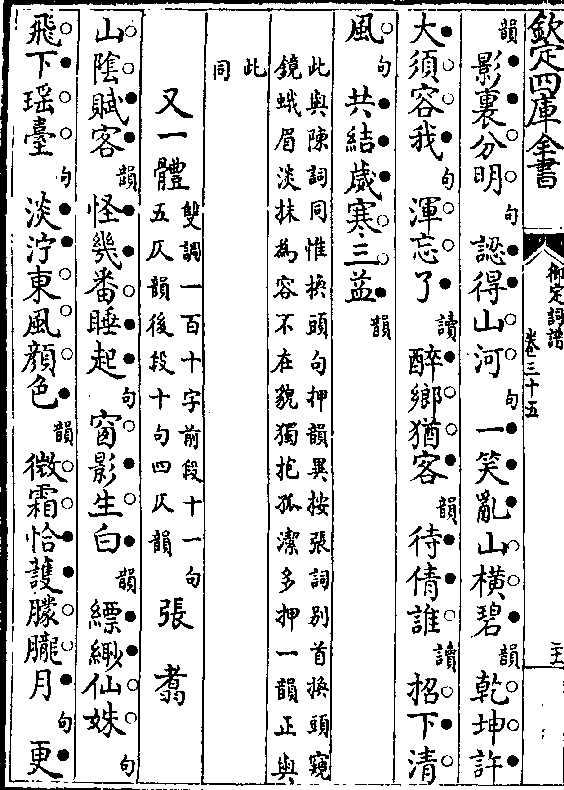 欽定四庫全書
御定詞譜
卷三十五
韻影裏分明句認得山河句一笑亂山橫碧韻乾坤許
大須容我句渾忘了讀醉鄉猶客韻待倩誰讀招下清
風句共結歲寒三益韻
此與陳詞同惟換頭句押韻異按張詞别首換頭窺
鏡蛾眉淡抹為容不在貌獨抱孤潔多押一韻正與
此
同
又一體
雙調一百十字前段十一句
五仄韻後段十句四仄韻
張翥
山陰賦客韻怪幾番睡起句窗影生白韻縹緲仙姝句
飛下瑶臺句淡泞東風顔色韻微霜恰護朦朧月句更